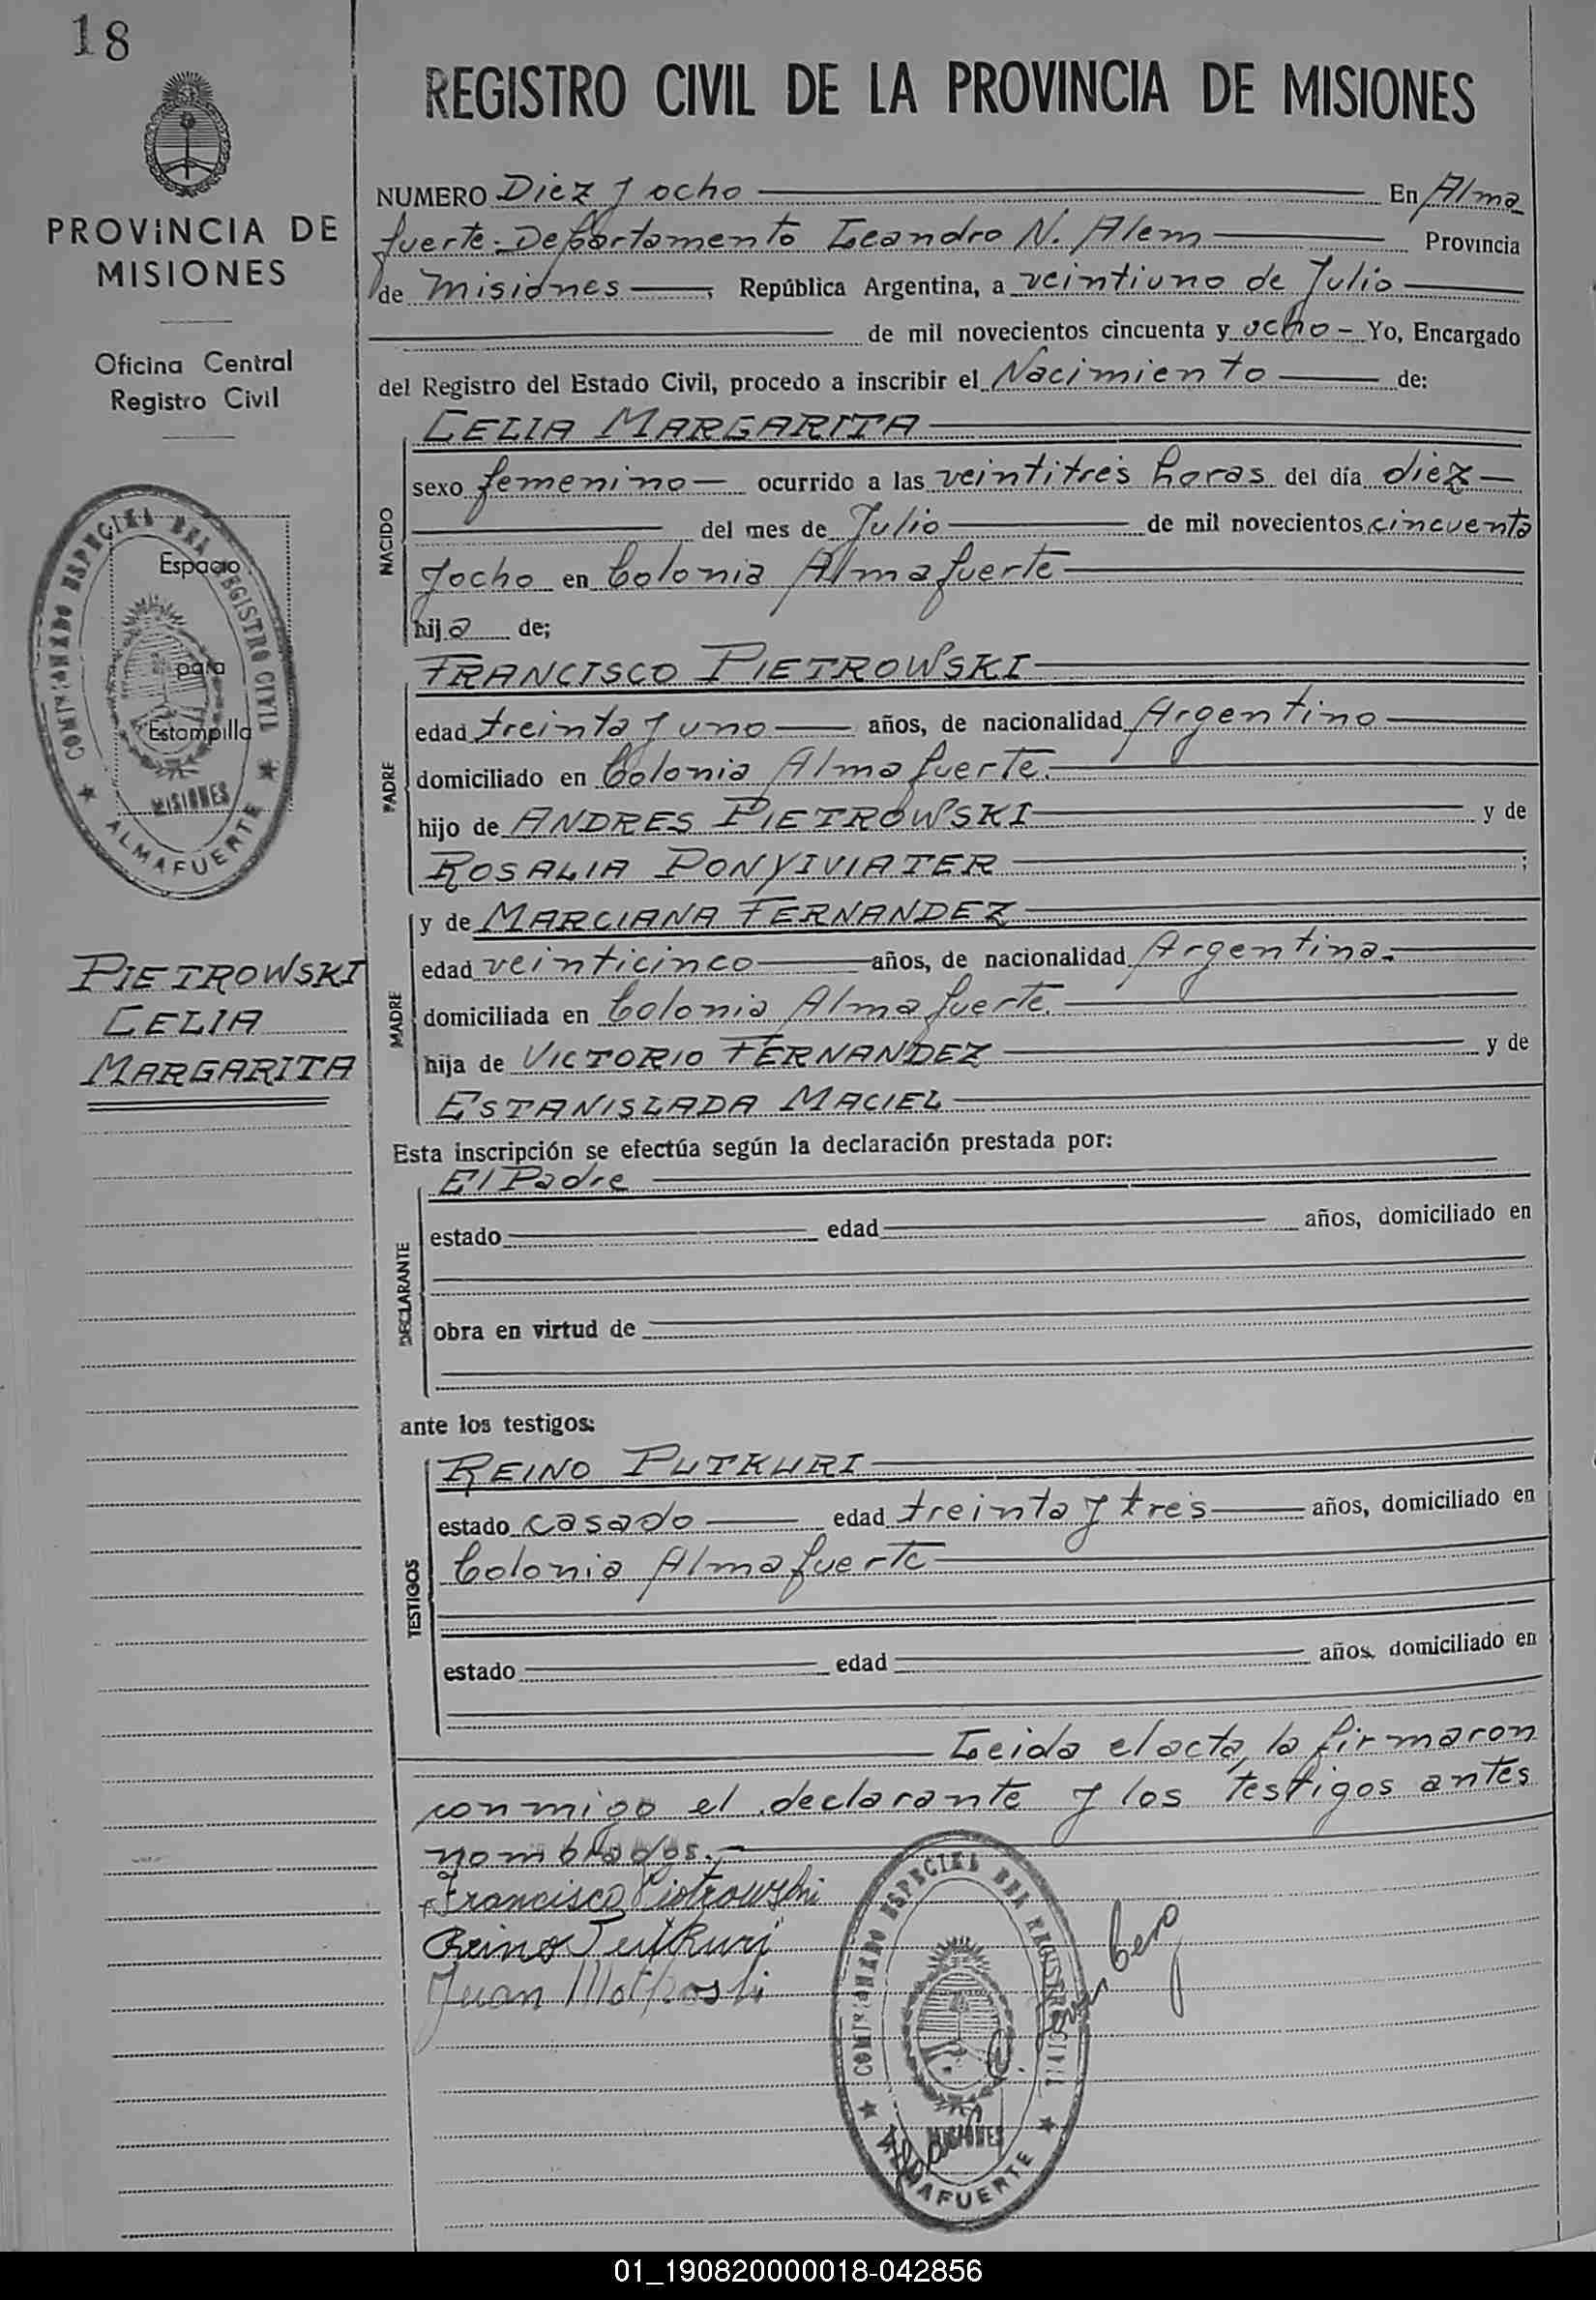 18
REGISTRO CIVIL DE LA PROVINCIA DE MISIONES
PROVINCIA DE
MISIONES
Oficina Central
Registro Civil
COMISIONADO ESPECIAL DEL REGISTRO CIVIL
Espacio
para
Estampilla
MISIONES
ALMAFUERTE
PIETROWSKI
CELIA
MARGARITA
NUMERO Diez y ocho En Alma
fuerte. Departamento Leandro N. Alem Provincia
de Misiones, República Argentina, a veintiuno de Julio
de mil novecientos cincuenta y ocho - Yo, Encargado
del Registro del Estado Civil, procedo a inscribir el Nacimiento de:
NACIDO
CELIA MARGARITA
sexo femenino ocurrido a las veintitrés horas del día diez
del mes de Julio de mil novecientos cincuenta
y ocho en Colonia Almafuerte
hija de;
PADRE
FRANCISCO PIETROWSKI
edad treinta y uno años, de nacionalidad Argentino
domiciliado en Colonia Almafuerte.
hijo de ANDRES PIETROWSKI y de
ROSALIA PONYIVIATER ;
MADRE
y de MARCIANA FERNANDEZ
edad veinticinco años, de nacionalidad Argentina.
domiciliada en Colonia Almafuerte.
hija de VICTORIO FERNANDEZ y de
ESTANISLADA MACIEL
Esta inscripción se efectúa según la declaración prestada por:
DECLARANTE
El Padre
estado edad años, domiciliado en
obra en virtud de
ante los testigos:
TESTIGOS
REINO PUTKURI
estado casado edad treinta y tres años, domiciliado en
Colonia Almafuerte
estado edad años, domiciliado en
Leida el acta, la firmaron
conmigo el declarante y los testigos antes
nombrados.
Francisco Piotrowski
Reino Putkuri
Juan
COMISIONADO ESPECIAL DEL REGISTRO CIVIL
MISIONES
ALMAFUERTE
01_190820000018-042856